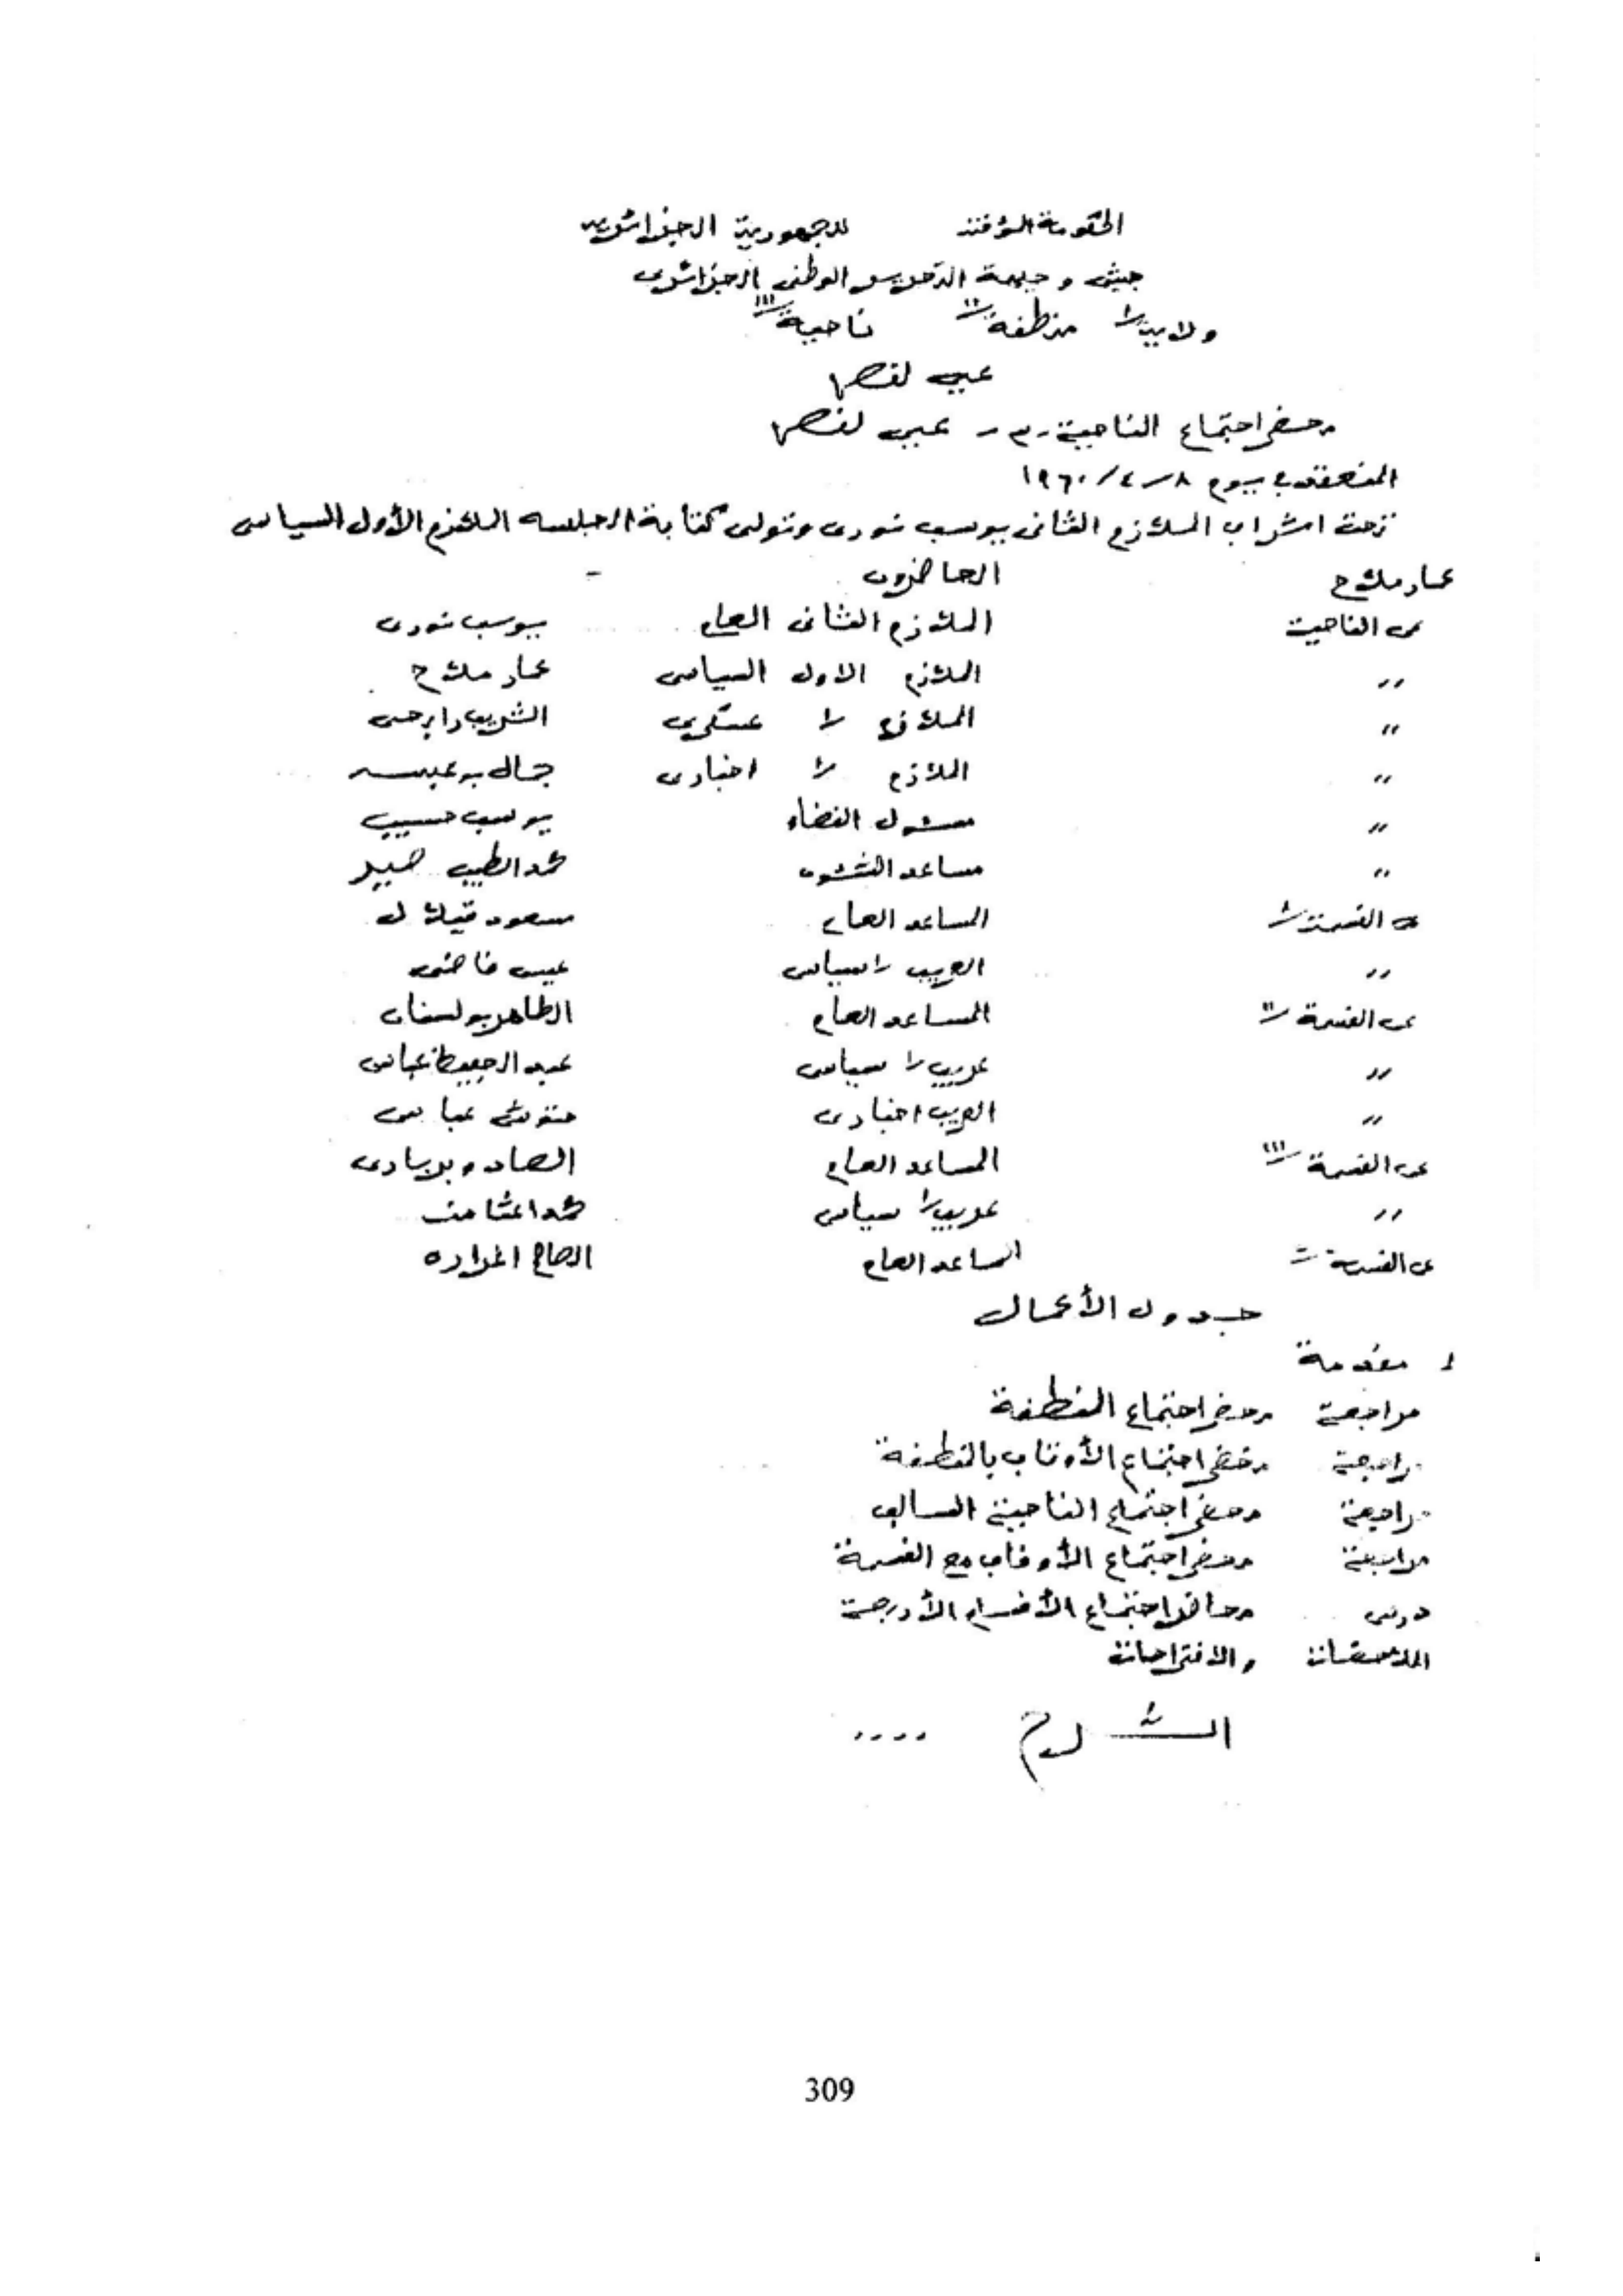 الحكومة المؤقتة للجمهورية الجزائرية
جيش و جبهة التحرير الوطني الجزائري
ولاية 1 منطقة 11 ناحية 111
عين لقصر
محضر اجتماع الناحية - 3 - عين لقصر
المنعقد في يوم 8 - 4 / 1960
تحت اشراف الملازم الثاني يوسف نوري وتولى كتابة الجلسه الملازم الأول السياسي
عمار ملاح
الحاضرون
عن الناحية الملازم الثاني العام يوسف نوري
" الملازم الاول السياسي عمار ملاح
" الملازم 1 عسكري الشريف
" الملازم 1 اخباري جمال
" مسئول القضاء يوسف حسين
" مساعد الشئون محمد الطيب
عن القسمة 1 المساعد العام مسعود
" العريف 1 سياسي عيسى قاضي
عن القسمة 11 المساعد العام الطاهر
" عريف 1 سياسي عبد الحفيظ عباس
" العريف اخباري عباس
عن القسمة 111 المساعد العام
" عريف 1 سياسي محمد
عن القسمة المساعد العام الحاج
جدول الأعمال
1 مقدمة
مراجعة محضر اجتماع المنطقة
مراجعة محضر اجتماع الأوقاف بالمنطقة
مراجعة محضر اجتماع الناحية السالف
مراجعة محضر اجتماع الأوقاف مع القسمة
درس محاضر اجتماع الأقسام الأربعة
الملاحظات والاقتراحات
الشرح ....
309